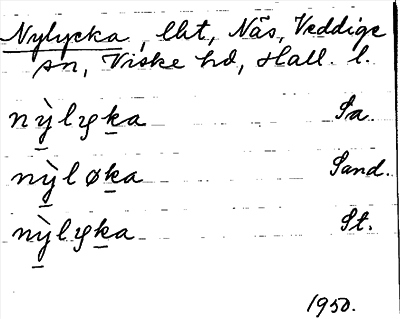 Nylycka, lht, Näs, Veddige
sn, Viske hd, Hall. l.
nỳlyka Sa.
nỳløka Sand.
nỳlyka St.
1950.